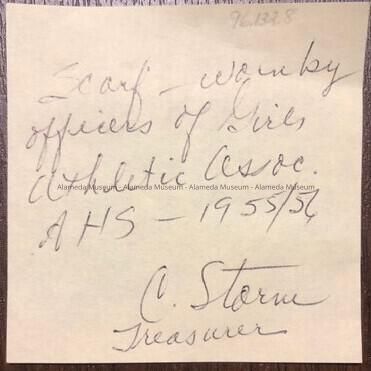 96.133.8
Scarf - worn by
officers of Girls
Athletic Assoc.
Alameda Museum - Alameda Museum - Alameda Museum - Alameda Museum
AHS - 1955/56
C. Storm
Treasurer